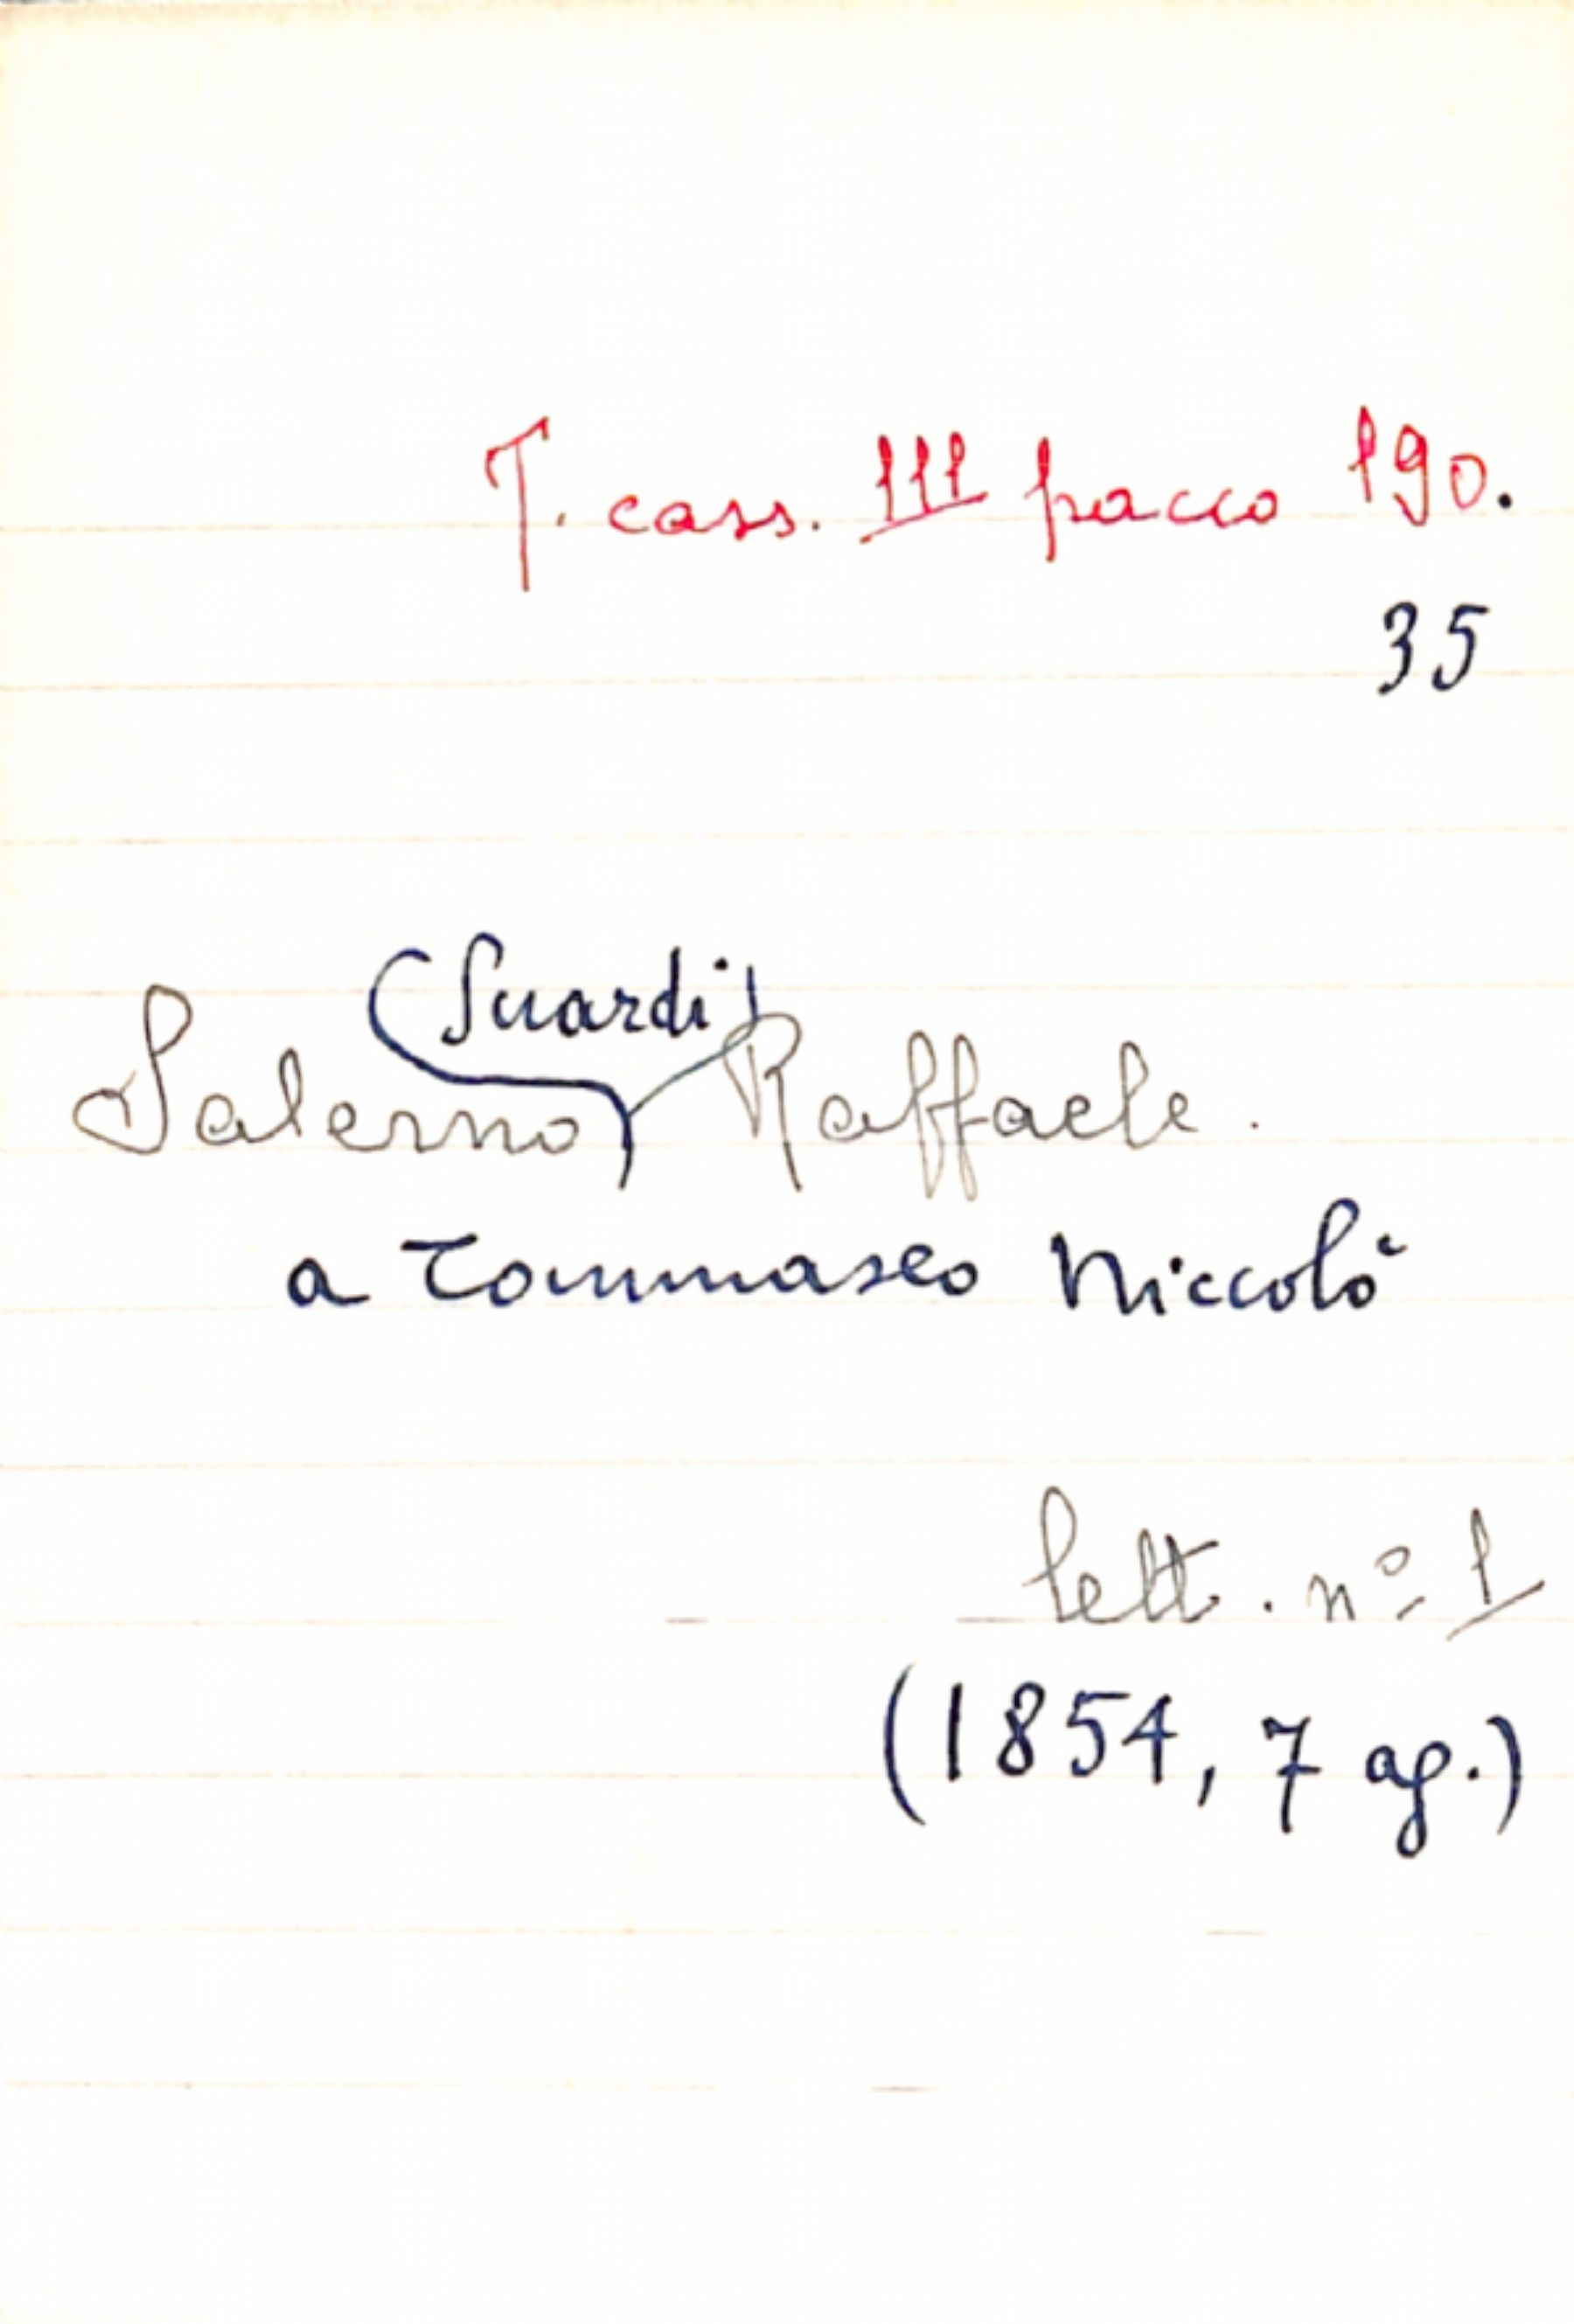 T. cass. III pacco 190.
35
Salerno (Suardi) Raffaele.
a Tommaseo Niccolò
lett. nº 1
(1854, 7 ag.)